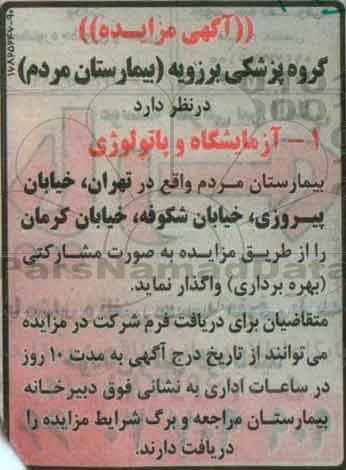 ((آگهی مزایـده))
گروه پزشکی برزویه (بیمارستان مردم)
درنظر دارد
۱ – آزمایشگاه و پاتولوژی
بیمارستان مـردم واقع در تهران، خیابان
پیـروزی، خیابان شکوفه، خیابان کرمان
را از طریق مزایده به صورت مشـارکتی
(بهره برداری) واگذار نماید.
متقاضیان برای دریافت فرم شرکت در مزایده
می‌توانند از تاریخ درج آگهی به مدت ۱۰ روز
در ساعـات اداری به نشانی فوق دبیرخـانه
بیمارستـان مراجعه و برگ شرایط مزایده را
دریافت دارند.
ParsNamadData